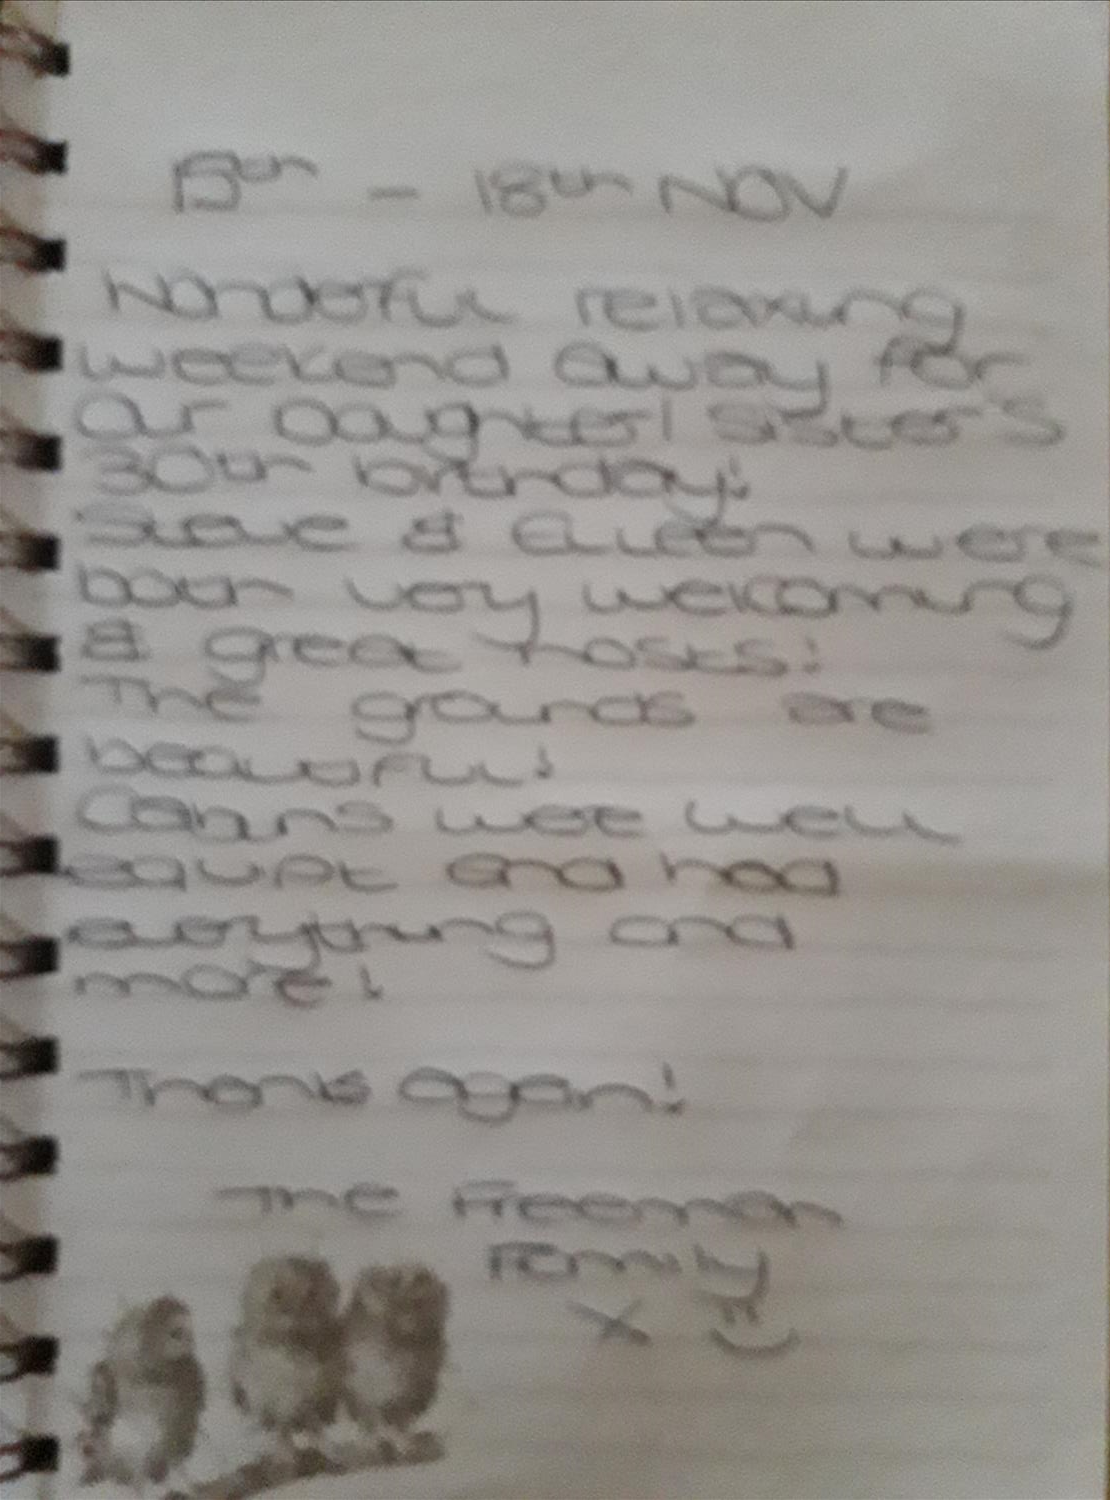 15th - 18th NOV
Wonderful relaxing
weekend away for
our Daughter/Sister's
30th birthday!
Steve & Eileen were
both very welcoming
& great hosts!
The grounds are
beautiful!
Cabins were well
equipt and had
everything and
more!
Thanks again!
The Freeman
Family
X :)